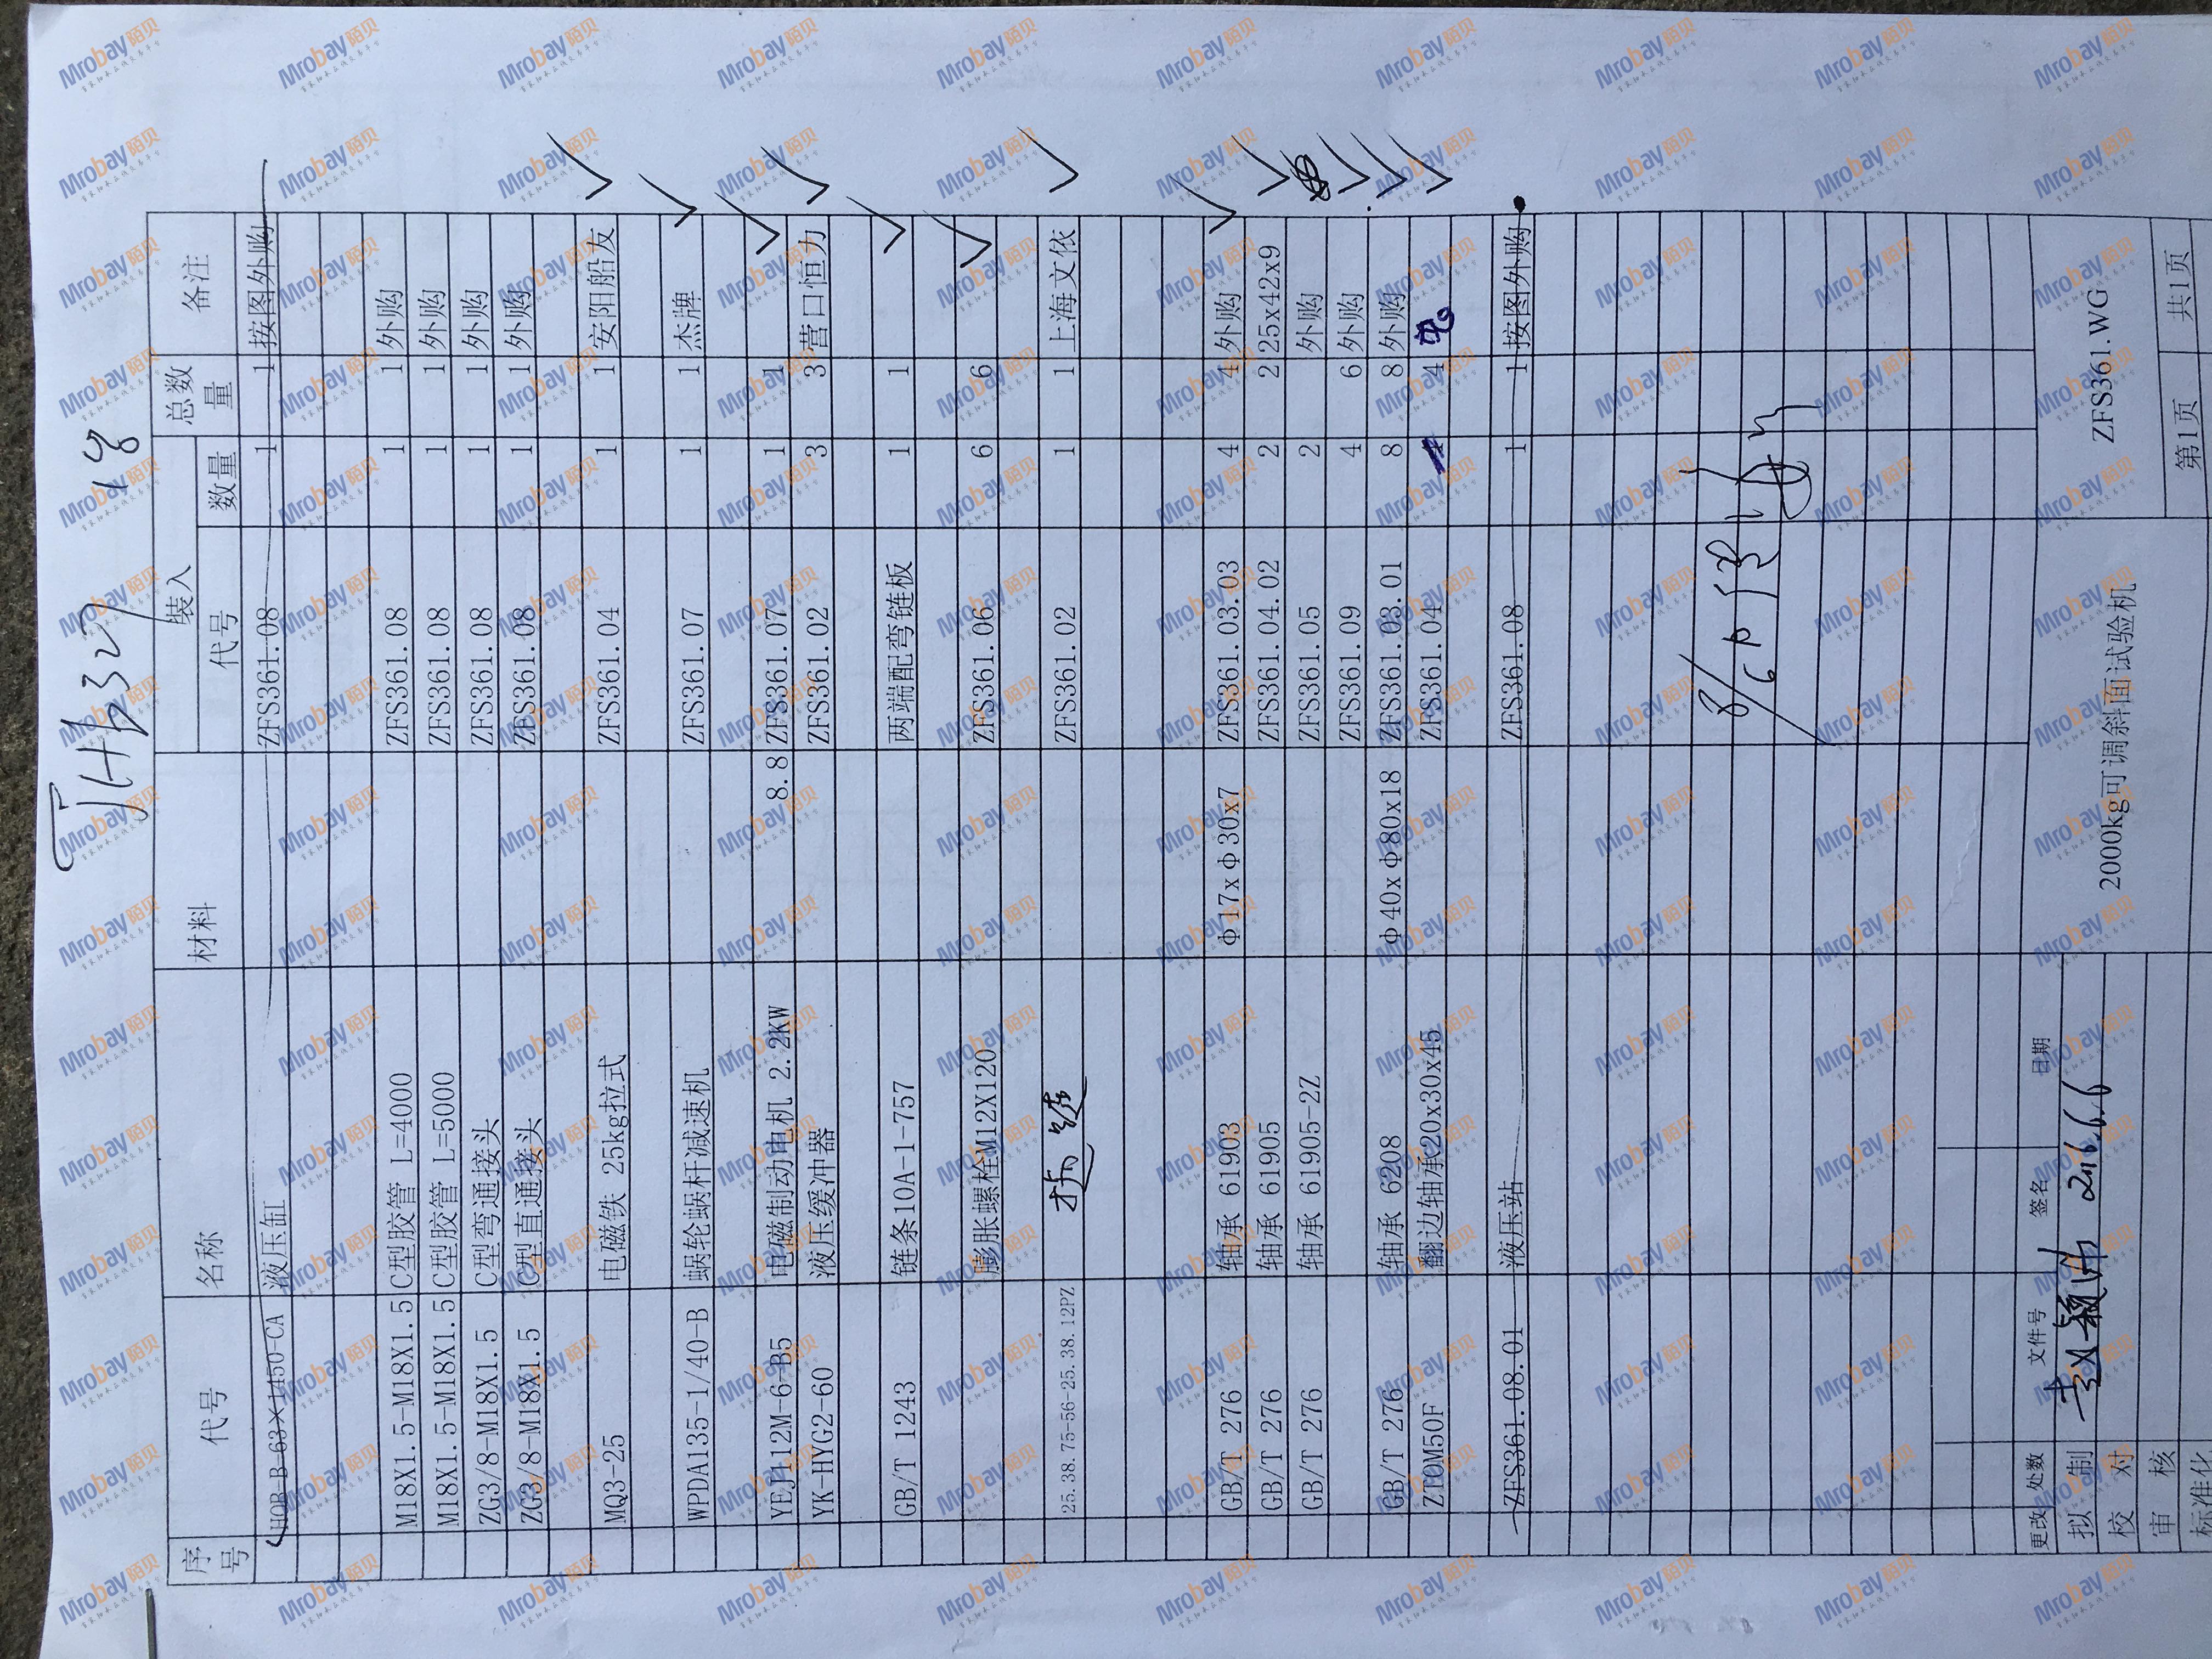 JHB327 1份
序号 代号 名称 材料 装入 总数量 备注
代号 数量
HOB-B-63X1450-CA 液压缸 ZFS361.08 1 1 按图外购
M18X1.5-M18X1.5 C型胶管 L=4000 ZFS361.08 1 1 外购
M18X1.5-M18X1.5 C型胶管 L=5000 ZFS361.08 1 1 外购
ZG3/8-M18X1.5 C型弯通接头 ZFS361.08 1 1 外购
ZG3/8-M18X1.5 C型直通接头 ZFS361.08 1 1 外购
MQ3-25 电磁铁 25kg拉式 ZFS361.04 1 1 安阳船友
WPDA135-1/40-B 蜗轮蜗杆减速机 ZFS361.07 1 1 杰牌
YEJ112M-6-B5 电磁制动电机 2.2KW 8.8 ZFS361.07 1 1
YK-HYG2-60 液压缓冲器 ZFS361.02 3 3 营口恒力
GB/T 1243 链条10A-1-757 两端配弯链板 1 1
膨胀螺栓M12X120 ZFS361.06 6 6
25.38.75-56-25.38.12PZ 拖链 ZFS361.02 1 1 上海文依
GB/T 276 轴承 61903 φ17xφ30x7 ZFS361.03.03 4 4 外购
GB/T 276 轴承 61905 ZFS361.04.02 2 2 25x42x9
GB/T 276 轴承 61905-2Z ZFS361.05 2 外购
ZFS361.09 4 6 外购
GB/T 276 轴承 6208 φ40xφ80x18 ZFS361.03.01 8 8 外购
ZFOM50F 翻边轴承20x30x45 ZFS361.04 4
ZFS361.08.01 液压站 ZFS361.08 1 1 按图外购
更改 处数 文件号 签名 日期
拟 制 赵颖帅 2016.6.6
校 对
审 核
标准化
2000kg可调斜面试验机
ZFS361.WG
第1页 共1页
Mrobay陌贝